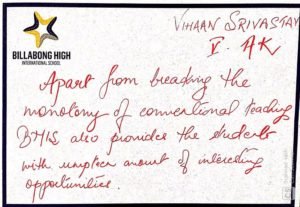 VIHAAN SRIVASTAV
V. AK
BILLABONG HIGH
INTERNATIONAL SCHOOL
Apart from breaking the
monotony of conventional teaching
BHIS also provides the students
with umpteen amount of interesting
opportunities.